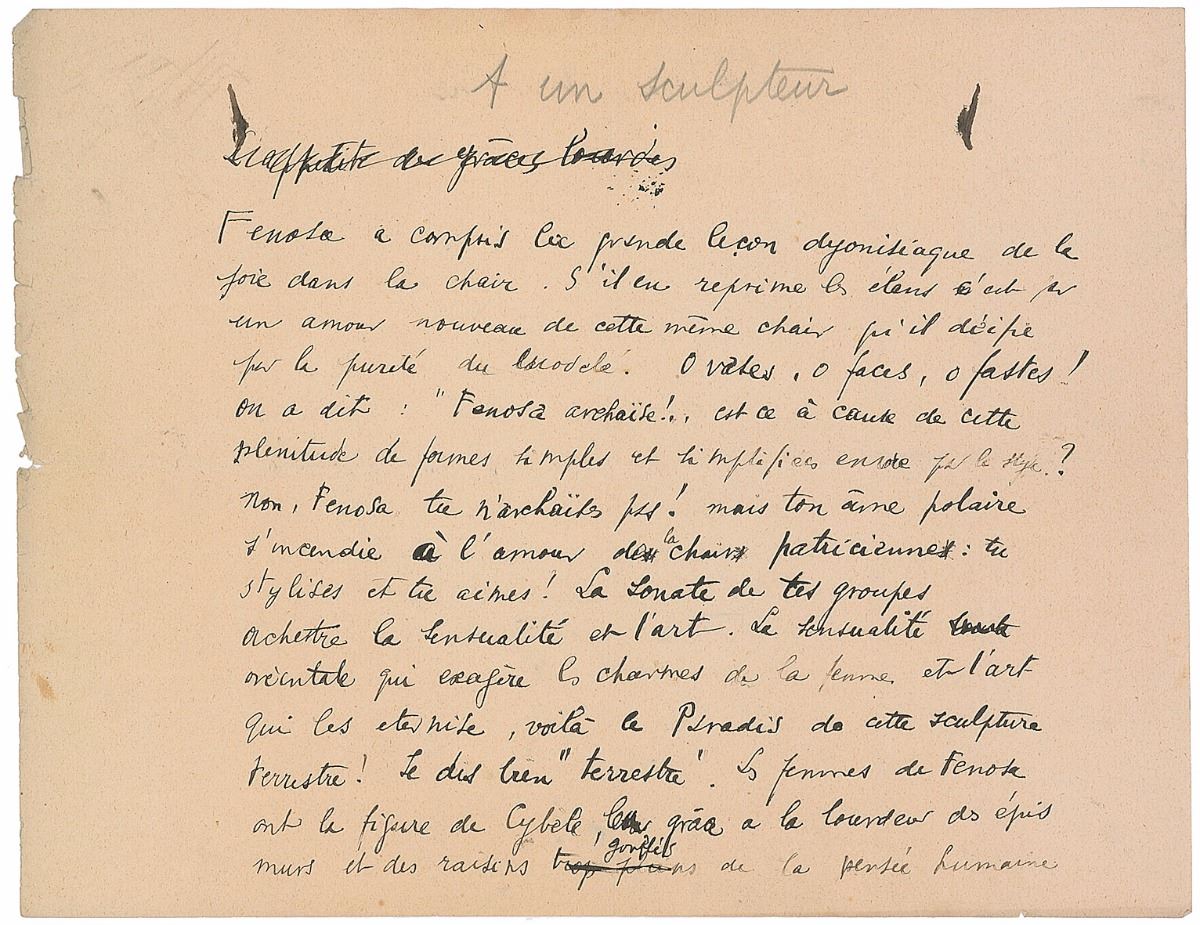 A un sculpteur
L'appétit des grâces lourdes
Fenosa a compris la grande leçon dyonisiaque de la
joie dans la chair. S'il en reprime les élans c'est par
un amour nouveau de cette même chair qu'il déifie
par la pureté du modelé. O vases, o faces, o fastes!
on a dit : "Fenosa archaïse!,, est ce à cause de cette
plénitude de formes simples et simplifiées encore par le style?
Non, Fenosa tu n'archaïses pas! mais ton âme polaire
s'incendie à l'amour de la chair patricienne : tu
stylises et tu aimes! La sonate de tes groupes
orchestre la sensualité et l'art. La sensualité
orientale qui exagère les charmes de la femme et l'art
qui les eternise, voilà le Paradis de cette sculpture
terrestre! Je dis bien "terrestre". Les femmes de Fenosa
ont la figure de Cybèle, leur grâce a la lourdeur des épis
murs et des raisins trop pleins gonflés de la pensée humaine